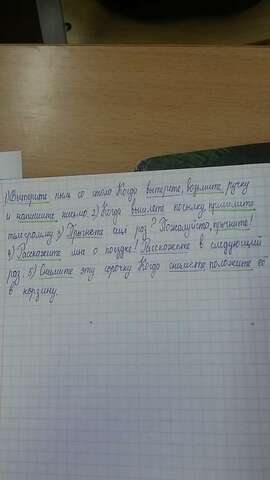 1) Вытерите пыль со стола Когда вытерете, возьмите ручку
и напишите письмо. 2) Когда вышлете посылку, пришлите
телеграмму 3) Прыгнете еще раз? Пожалуйста, прыгните!
4) Расскажите мне о поездке! Расскажете в следующий
раз. 5) Снимите эту сорочку Когда снимете, положите её
в корзину.